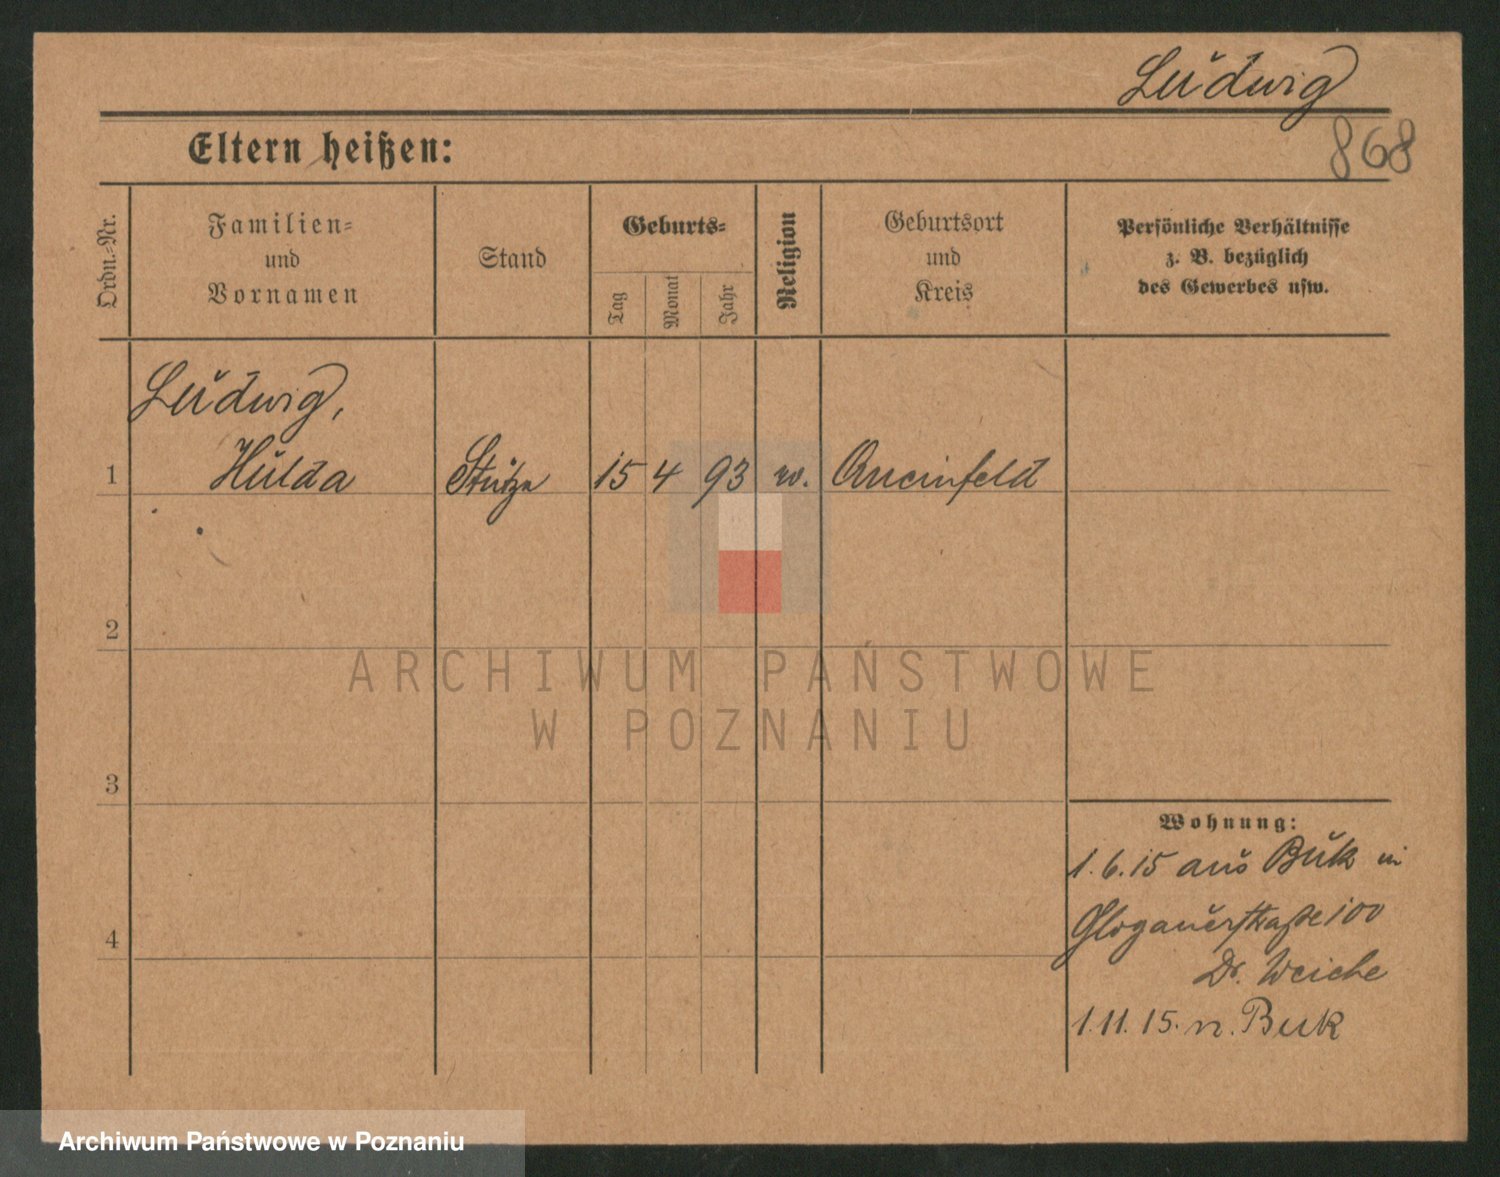 Ludwig
868
Eltern heißen:
Ordn.-Nr.
Familien-
und
Vornamen
Stand
Geburts-
Tag
Monat
Jahr
Religion
Geburtsort
und
Kreis
Persönliche Verhältnisse
z. B. bezüglich
des Gewerbes usw.
Ludwig,
1 Hulda Stütze 15 4 93
2
3
4
Wohnung:
1.6.15 aus Buk in
Glogauerstraße 100
Dr. Weiche
1.11.15. n. Buk
ARCHIWUM PAŃSTWOWE
W POZNANIU
Archiwum Państwowe w Poznaniu